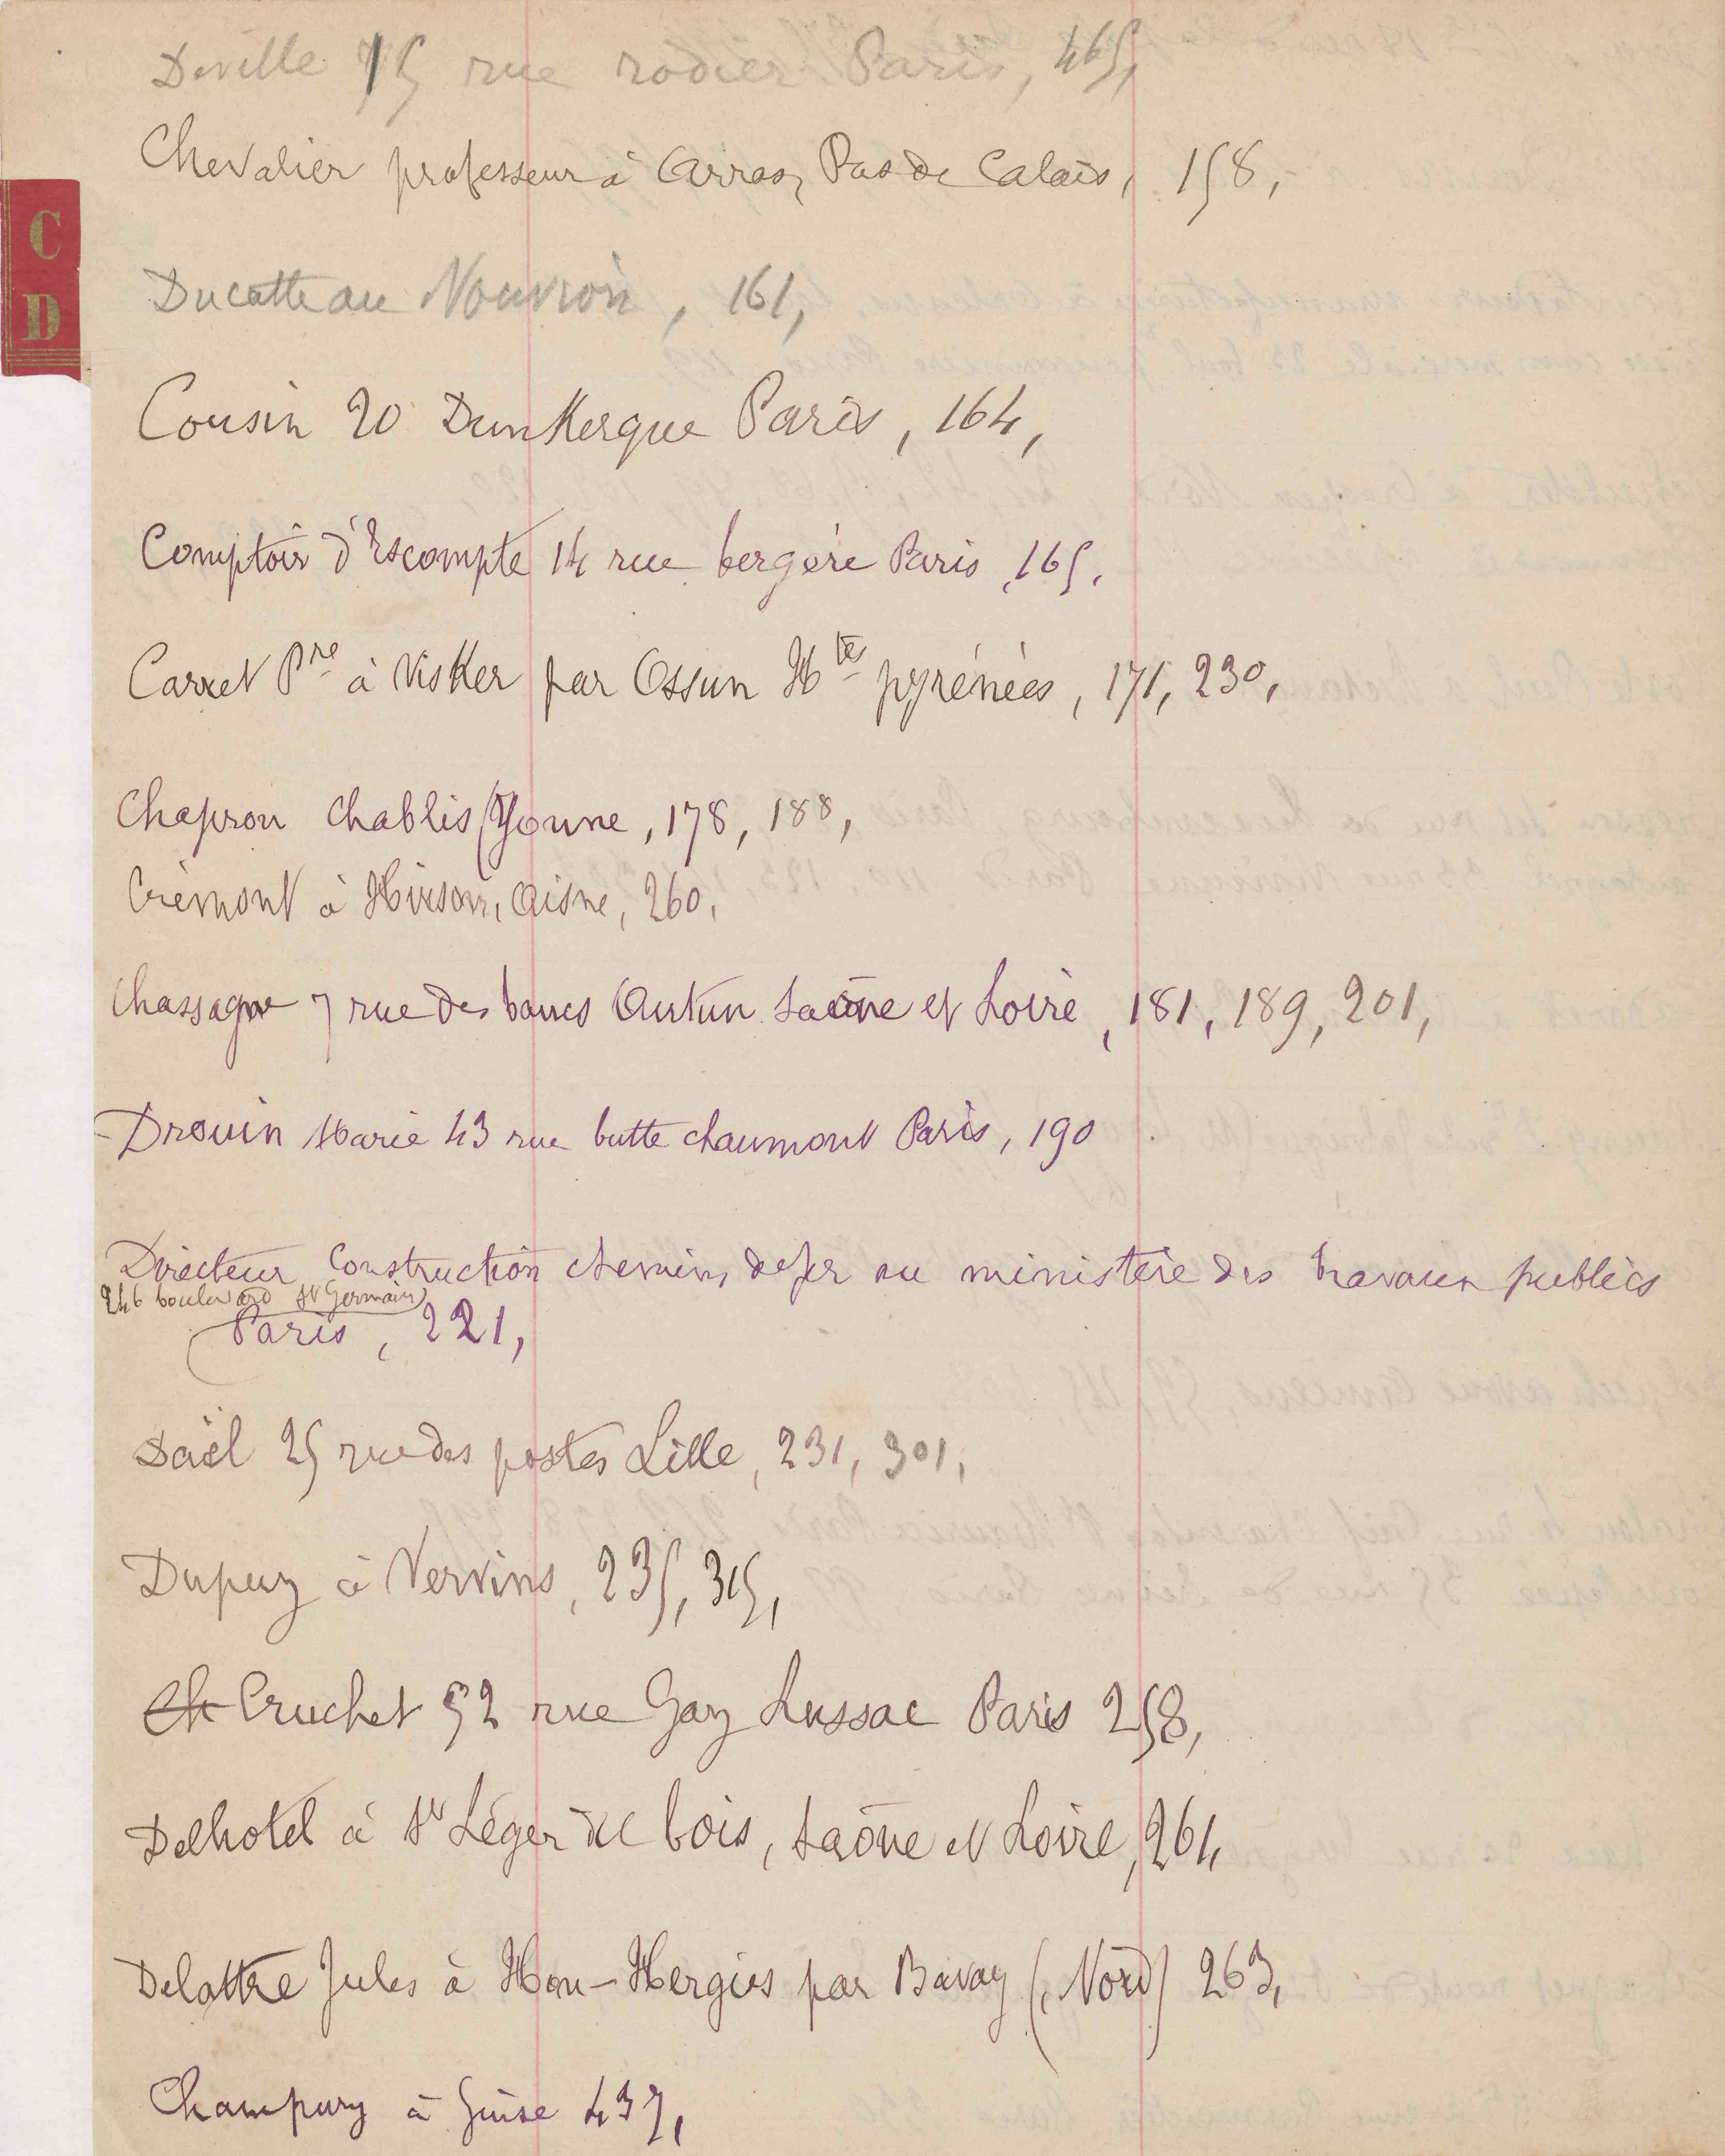 Deville 75 rue rodier Paris, 465,
Chevalier professeur à Arras, Pas de Calais, 158,
C
D
Ducatteau Nouvion, 161,
Cousin 20 Dunkerque Paris, 164,
Comptoir d'Escompte 14 rue bergère Paris, 165.
Carret Pre à Visker par Ossun Htes pyrénées, 171, 230,
Chapron Chablis (Yonne, 178, 188,
Crémont à Hirson, Aisne, 260,
Chassagne 7 rue des bancs Autun Saône et Loire, 181, 189, 201,
Drouin Marie 43 rue butte chaumont Paris, 190
Directeur Construction chemins de fer au ministère des travaux publics
246 boulevard St Germain
Paris, 221,
Daël 25 rue des postes Lille, 231, 301,
Dupuy à Vervins, 235, 315,
Ch Cruchet 52 rue Gay Lussac Paris 258,
Delhotel à St Léger du bois, Saône et Loire, 261,
Delattre Jules à Hon-Hergies par Bavay (Nord) 263,
Champury à Guise 437,